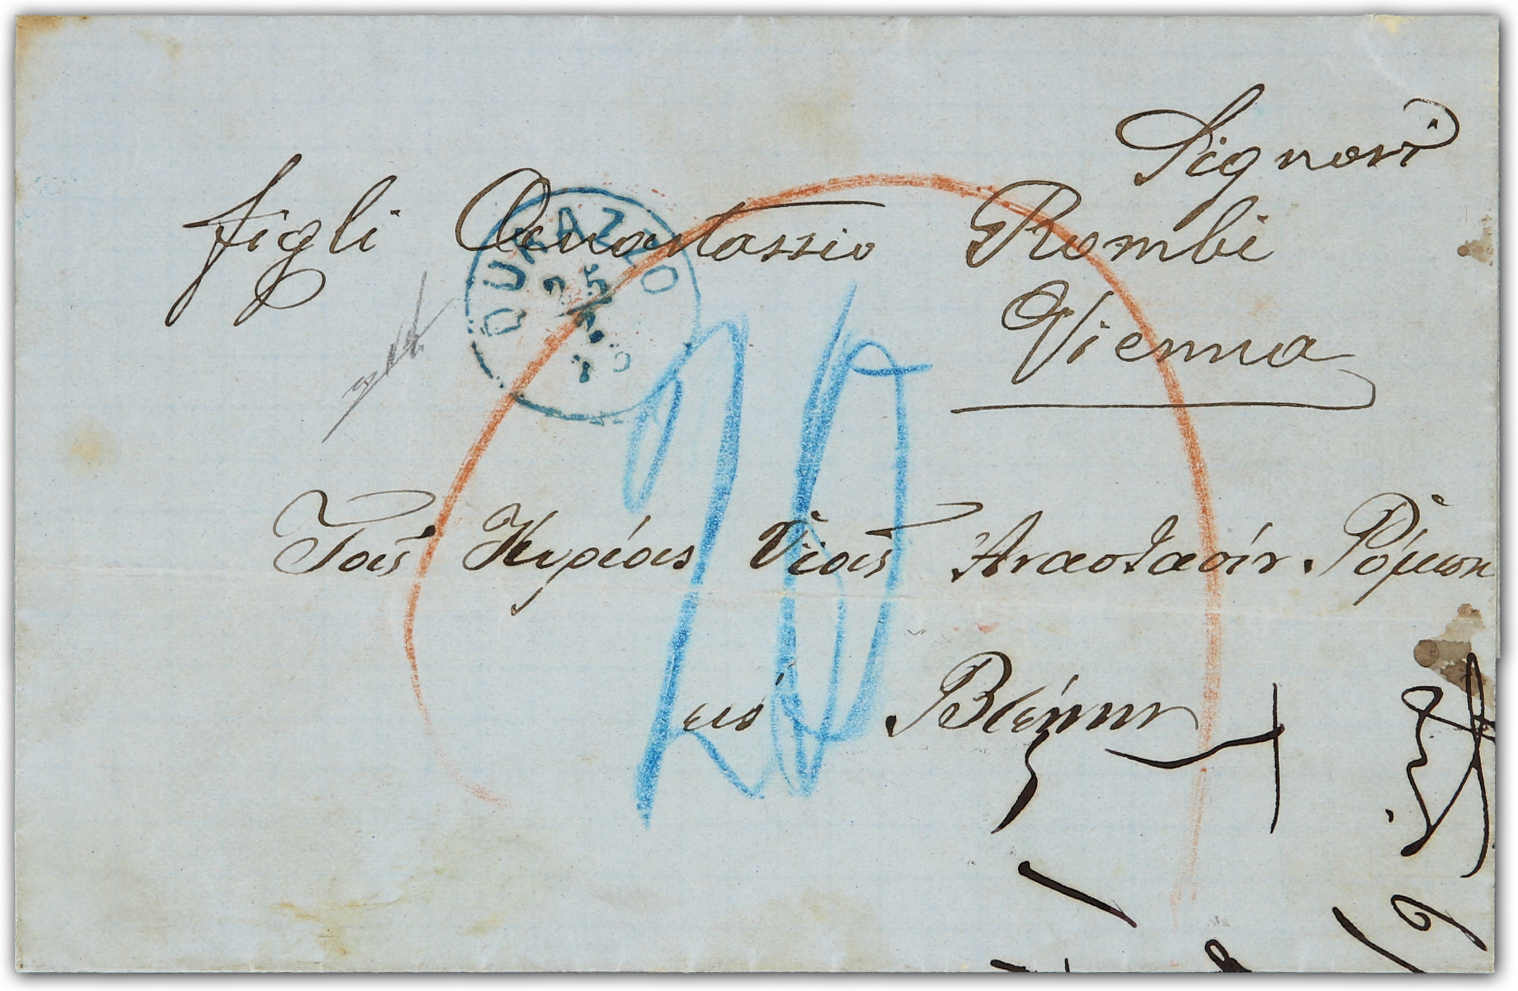 Signori
figli Anastassio Rombi
Vienna
DURAZZO
25
20
Τοῖς Κυρίοις Υἱοῖς Ἀναστασίου Ῥόμπη
εἰς Βιέννην